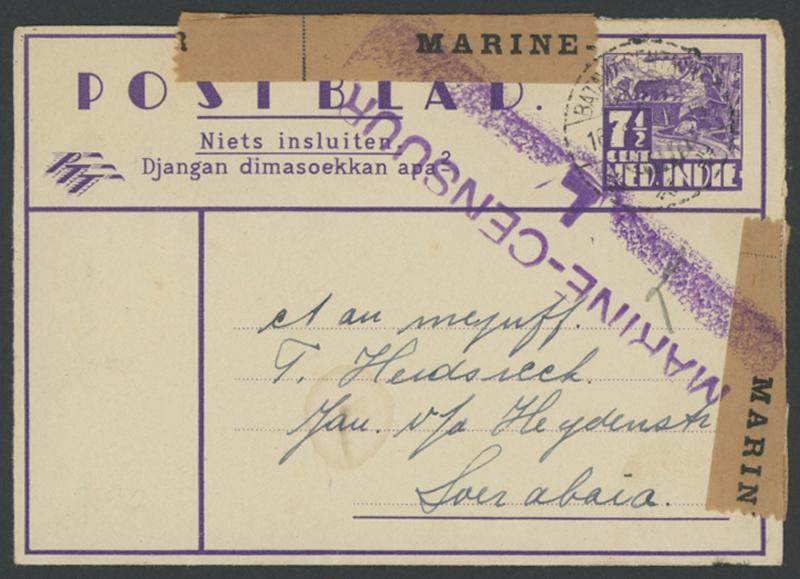 R MARINE-
POSTBLAD.
Niets insluiten.
Djangan dimasoekkan apa2
PTT
7½
CENT
NED.INDIE
BATAVIA-CENTRUM
MARINE-CENSUUR
1
MARINE
Aan mejuff.
T. Heidsieck.
Jan. v/d Heydenstr
Soerabaia.